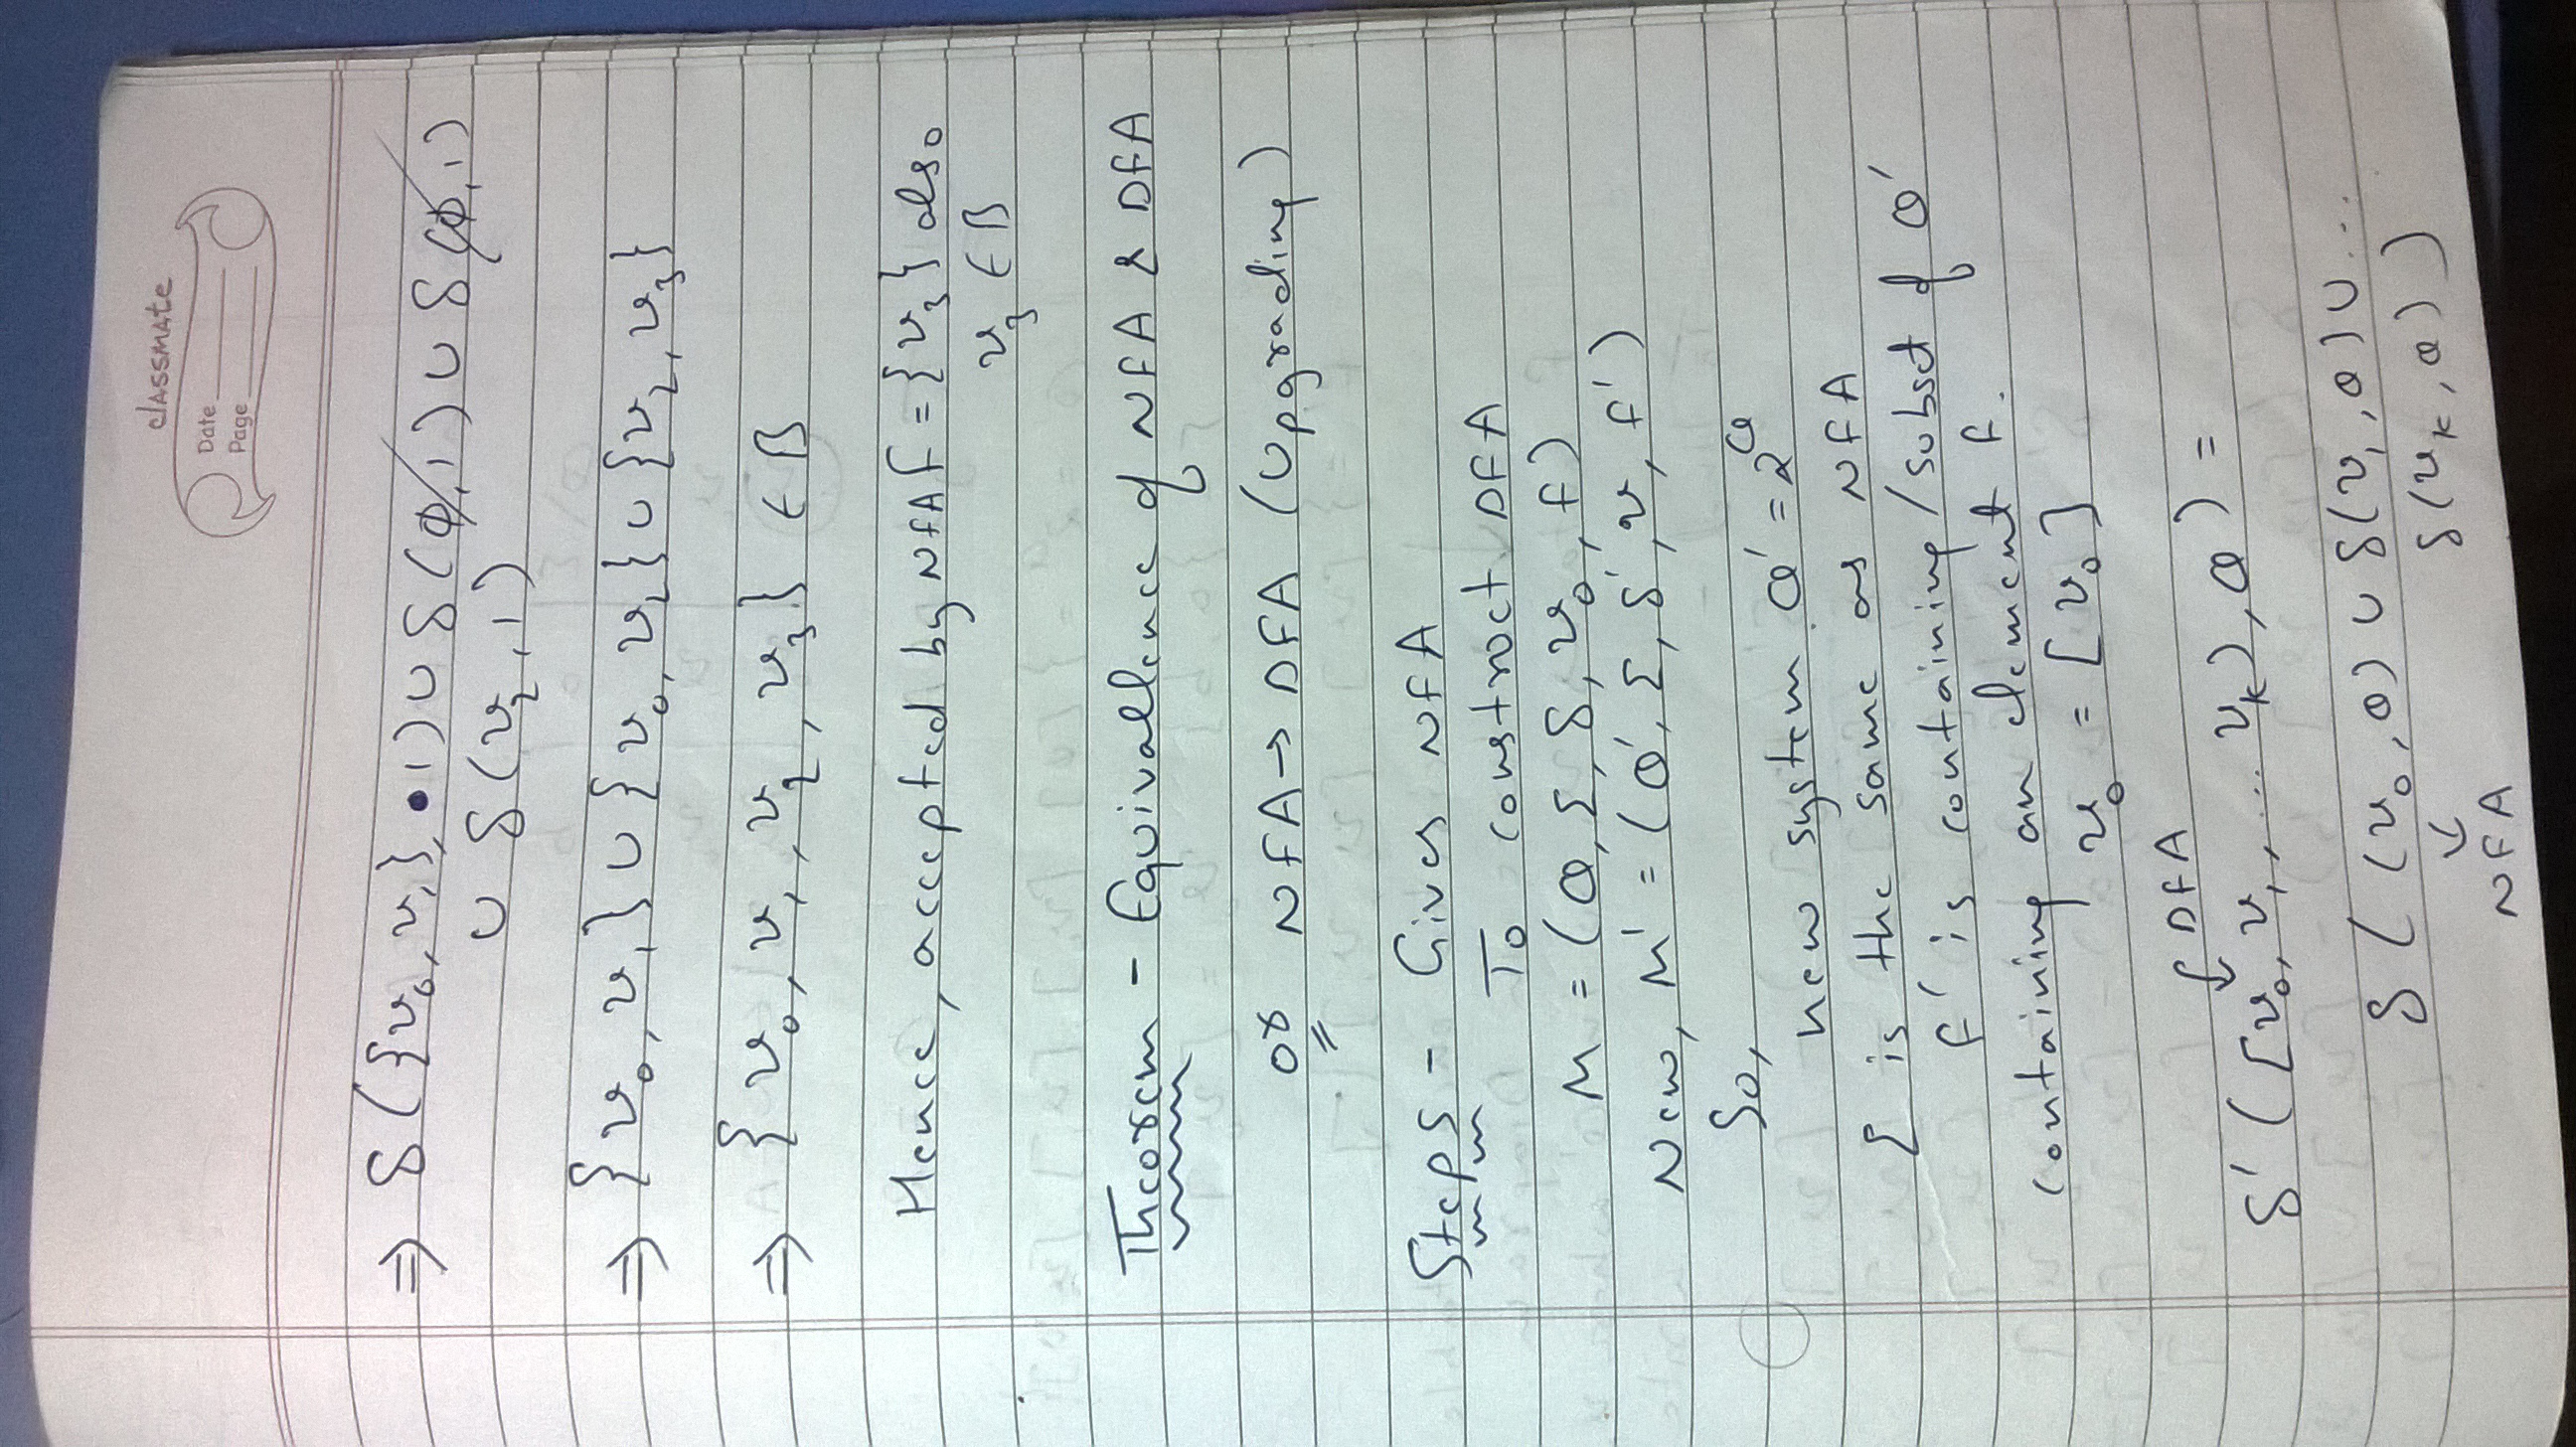 classmate
Date
Page
⇒ δ({v₀, v₁}, 1) ∪ δ(ϕ, 1) ∪ δ(ϕ, 1)
∪ δ(v₂, 1)
⇒ {v₀, v₁} ∪ {v₀, v₂} ∪ {v₂, v₃}
⇒ {v₀, v₁, v₂, v₃} ∈ B
Hence, accepted by NFA F = {v₃} also
v₃ ∈ B
Theorem - Equivallence of NFA & DFA
or NFA → DFA (Upgrading)
Steps - Gives NFA
To construct DFA
M = (Q, Σ, δ, v₀, F)
New, M' = (Q', Σ, δ', v, F')
So,
new system Q' = 2^Q
Σ is the same as NFA
F' is containing/subset of Q'
containing an element F.
v₀ = [v₀]
DFA
δ'([v₀, v₁, ... vₖ), Q) =
δ((v₀, Q) ∪ δ(v₁, Q) ∪ ...
δ(vₖ, Q))
NFA